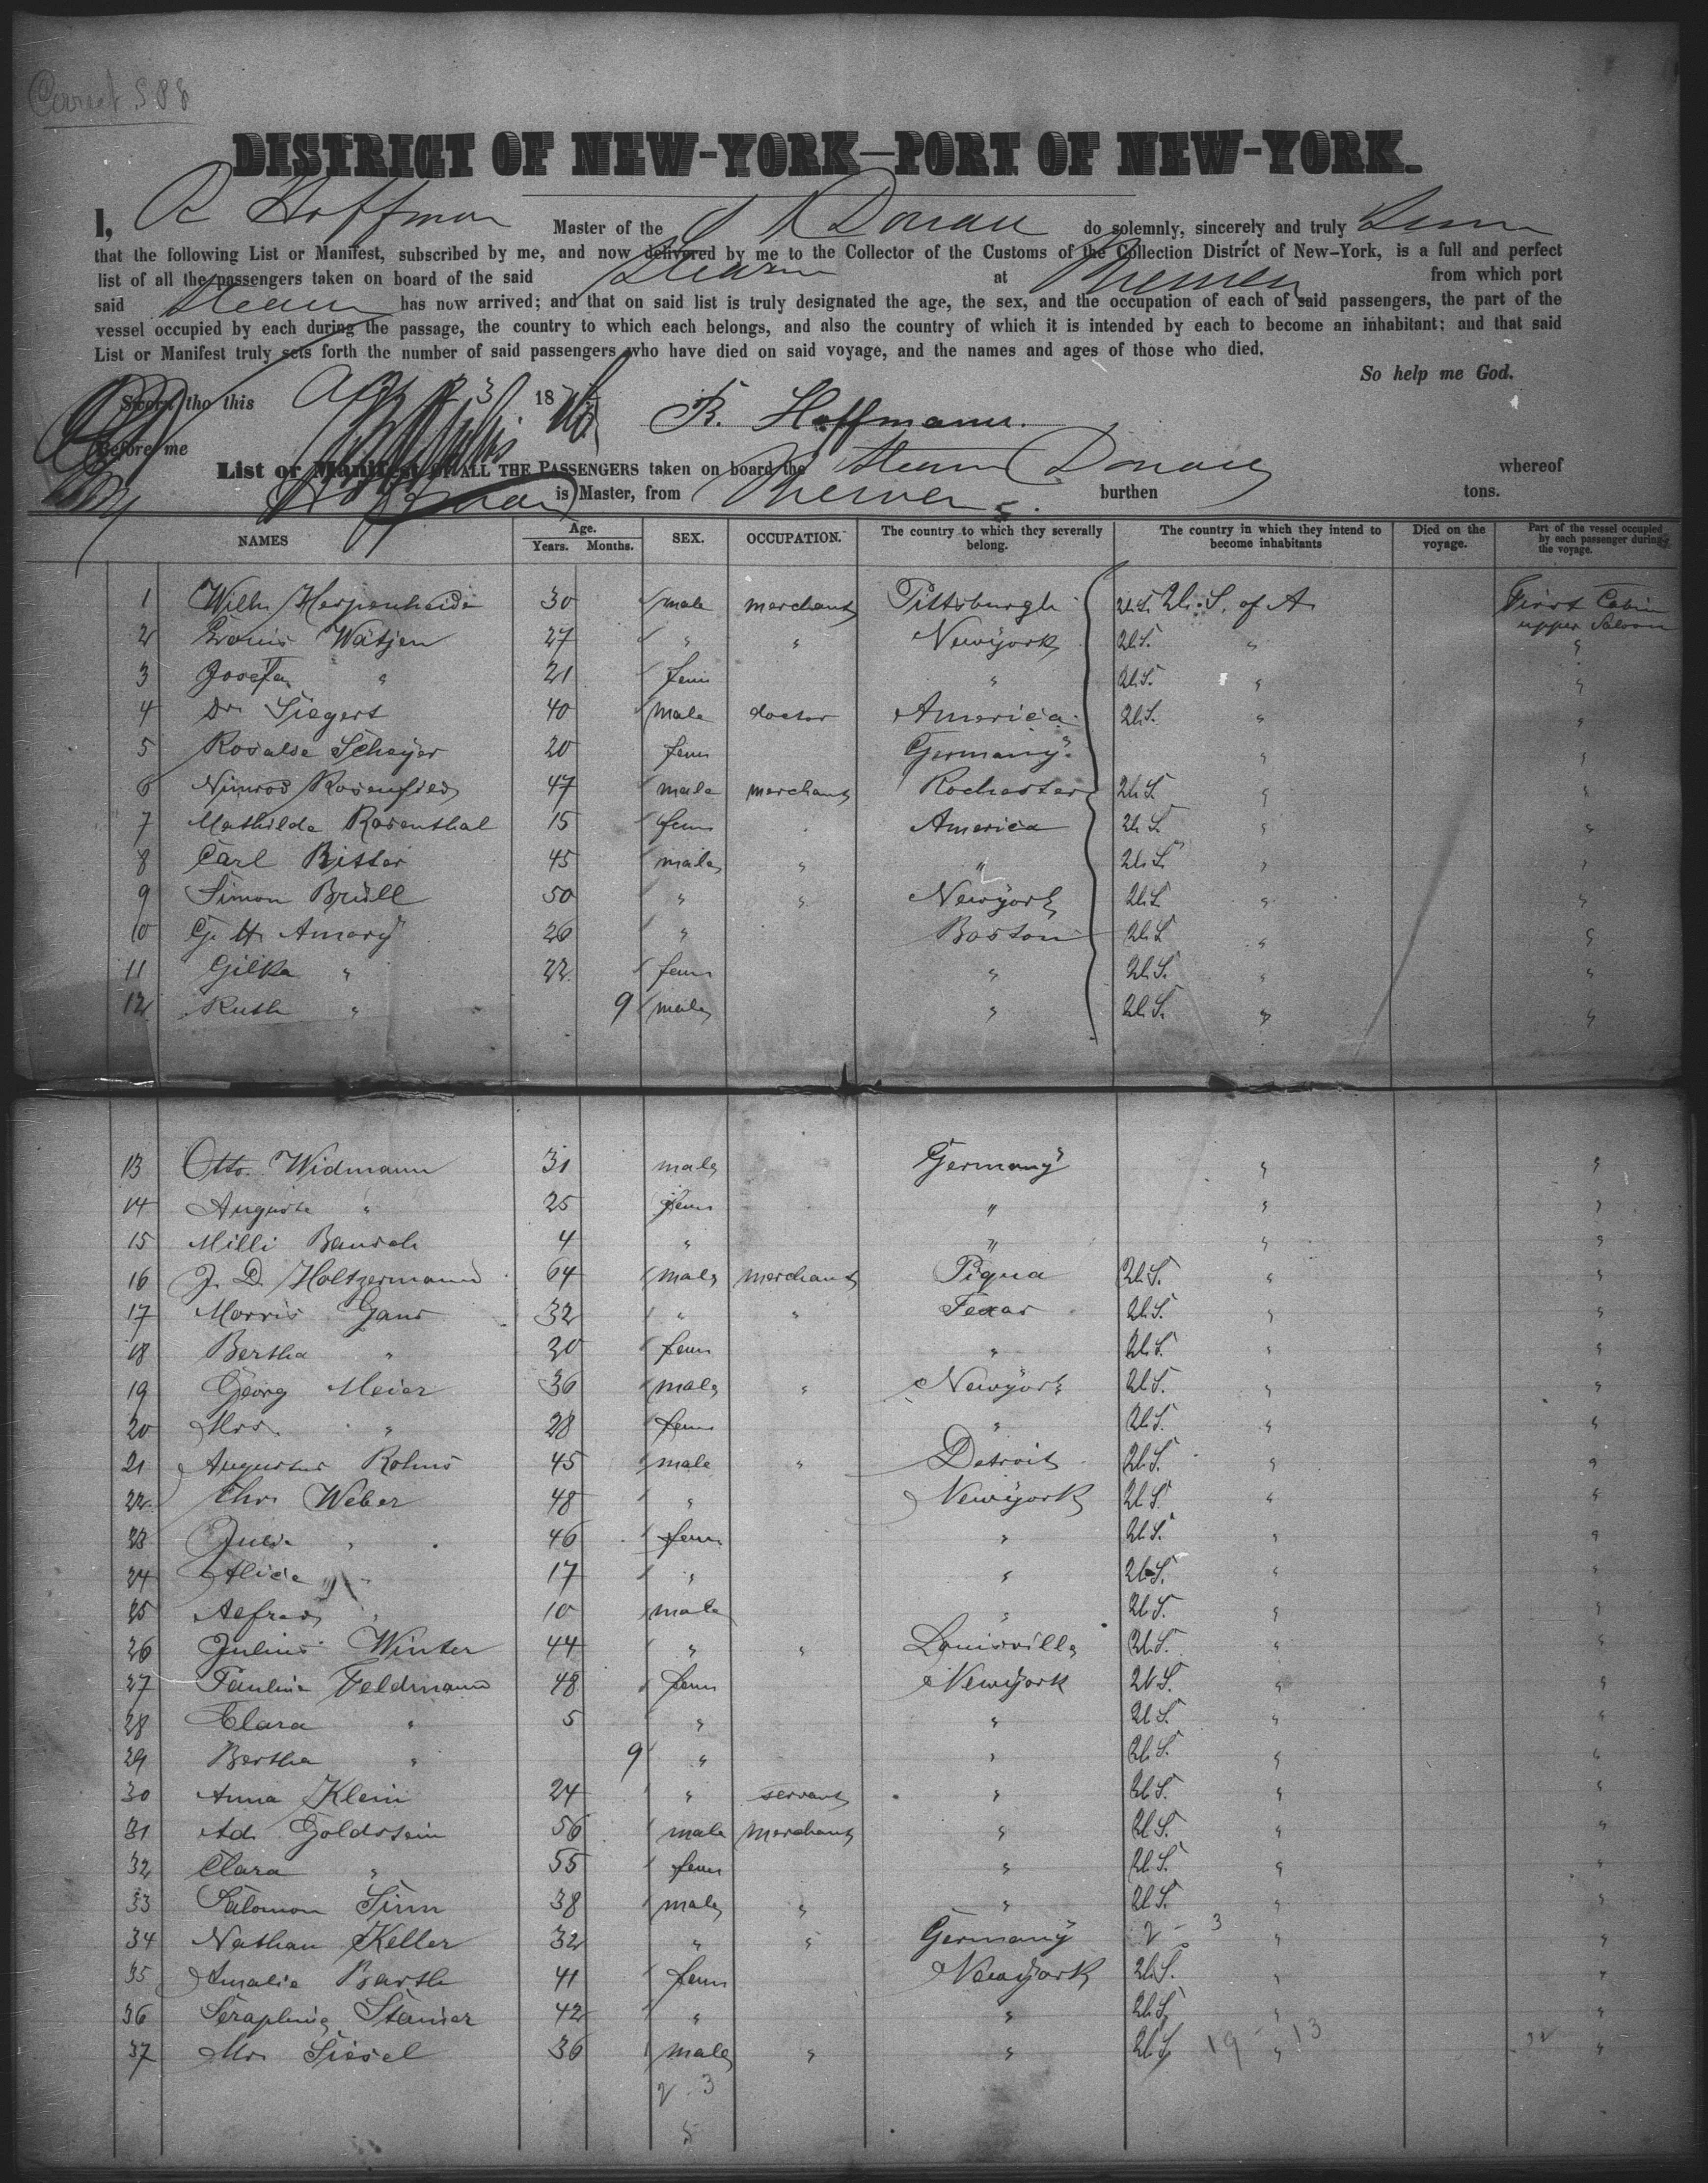 Correct 588
DISTRICT OF NEW-YORK—PORT OF NEW-YORK.
I, R Hoffman Master of the Donau do solemnly, sincerely and truly
that the following List or Manifest, subscribed by me, and now delivered by me to the Collector of the Customs of the Collection District of New-York, is a full and perfect
list of all the passengers taken on board of the said Steam at Bremen from which port
said Steam has now arrived; and that on said list is truly designated the age, the sex, and the occupation of each of said passengers, the part of the
vessel occupied by each during the passage, the country to which each belongs, and also the country of which it is intended by each to become an inhabitant; and that said
List or Manifest truly sets forth the number of said passengers who have died on said voyage, and the names and ages of those who died.
So help me God.
Sworn tho this 187
R. Hoffmann.
Before me
List or Manifest OF ALL THE PASSENGERS taken on board the Steam Donau whereof
is Master, from Bremen burthen tons.
NAMES Age. Years. Months. SEX. OCCUPATION. The country to which they severally belong. The country in which they intend to become inhabitants Died on the voyage. Part of the vessel occupied by each passenger during the voyage.
1 Wilh. Herpenheide 30 male merchant Pittsburgh U.S. U.S. of A. First Cabin upper Saloon
2 Louis Wätjen 27 " " Newyork U.S. " "
3 Josefa " 21 fem " U.S. " "
4 Dr. Siegert 40 male doctor America U.S. " "
5 Rosalse Scheyer 20 fem Germany " "
6 Nimrod Rosenfield 47 male merchant Rochester U.S. " "
7 Mathilde Rosenthal 15 fem America U.S. " "
8 Carl Ritter 45 male " " U.S. " "
9 Simon Brüll 50 " " Newyork U.S. " "
10 G. H. Amory 26 " Boston U.S. " "
11 Gilka " 22 fem " U.S. " "
12 Ruth " 9 male " U.S. " "
13 Otto Widmann 31 male Germany " "
14 Auguste " 25 fem " " "
15 Milli Bausch 4 " " " "
16 J. D. Holtzermann 64 male merchant Piqua U.S. " "
17 Morris Gans 32 " " Texas U.S. " "
18 Bertha " 20 fem " U.S. " "
19 Georg Meier 36 male " Newyork U.S. " "
20 Mrs. " 28 fem " U.S. " "
21 Augustus Rohns 45 male " Detroit U.S. " "
22 Chr. Weber 48 " Newyork U.S. " "
23 Julia " 46 fem " U.S. " "
24 Alice " 17 " " U.S. " "
25 Alfred " 10 male " U.S. " "
26 Julius Winter 44 " " Louisville U.S. " "
27 Pauline Feldmann 48 fem Newyork U.S. " "
28 Clara " 5 " " U.S. " "
29 Bertha " 9 " " U.S. " "
30 Anna Klein 24 " servant " U.S. " "
31 Ad. Goldstein 56 male merchant " U.S. " "
32 Clara " 55 fem " U.S. " "
33 Salomon Sinn 38 male " " U.S. " "
34 Nathan Keller 32 " " Germany 2 - 3 " "
35 Amalie Barth 41 fem Newyork U.S. " "
36 Seraphina Stanier 42 " " U.S. " "
37 Mr. Siesel 36 male " " U.S. 19 - 13 " 32 "
2 3
5